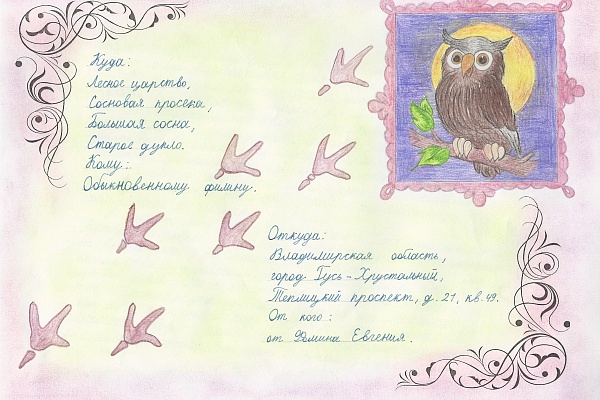 Куда:
Лесное царство,
Сосновая просека,
Большая сосна,
Старое дупло.
Кому:
Обыкновенному филину.
Откуда:
Владимирская область,
город Гусь-Хрустальный,
Теплицкий проспект, д. 21, кв. 49.
От кого:
от Фомина Евгения.